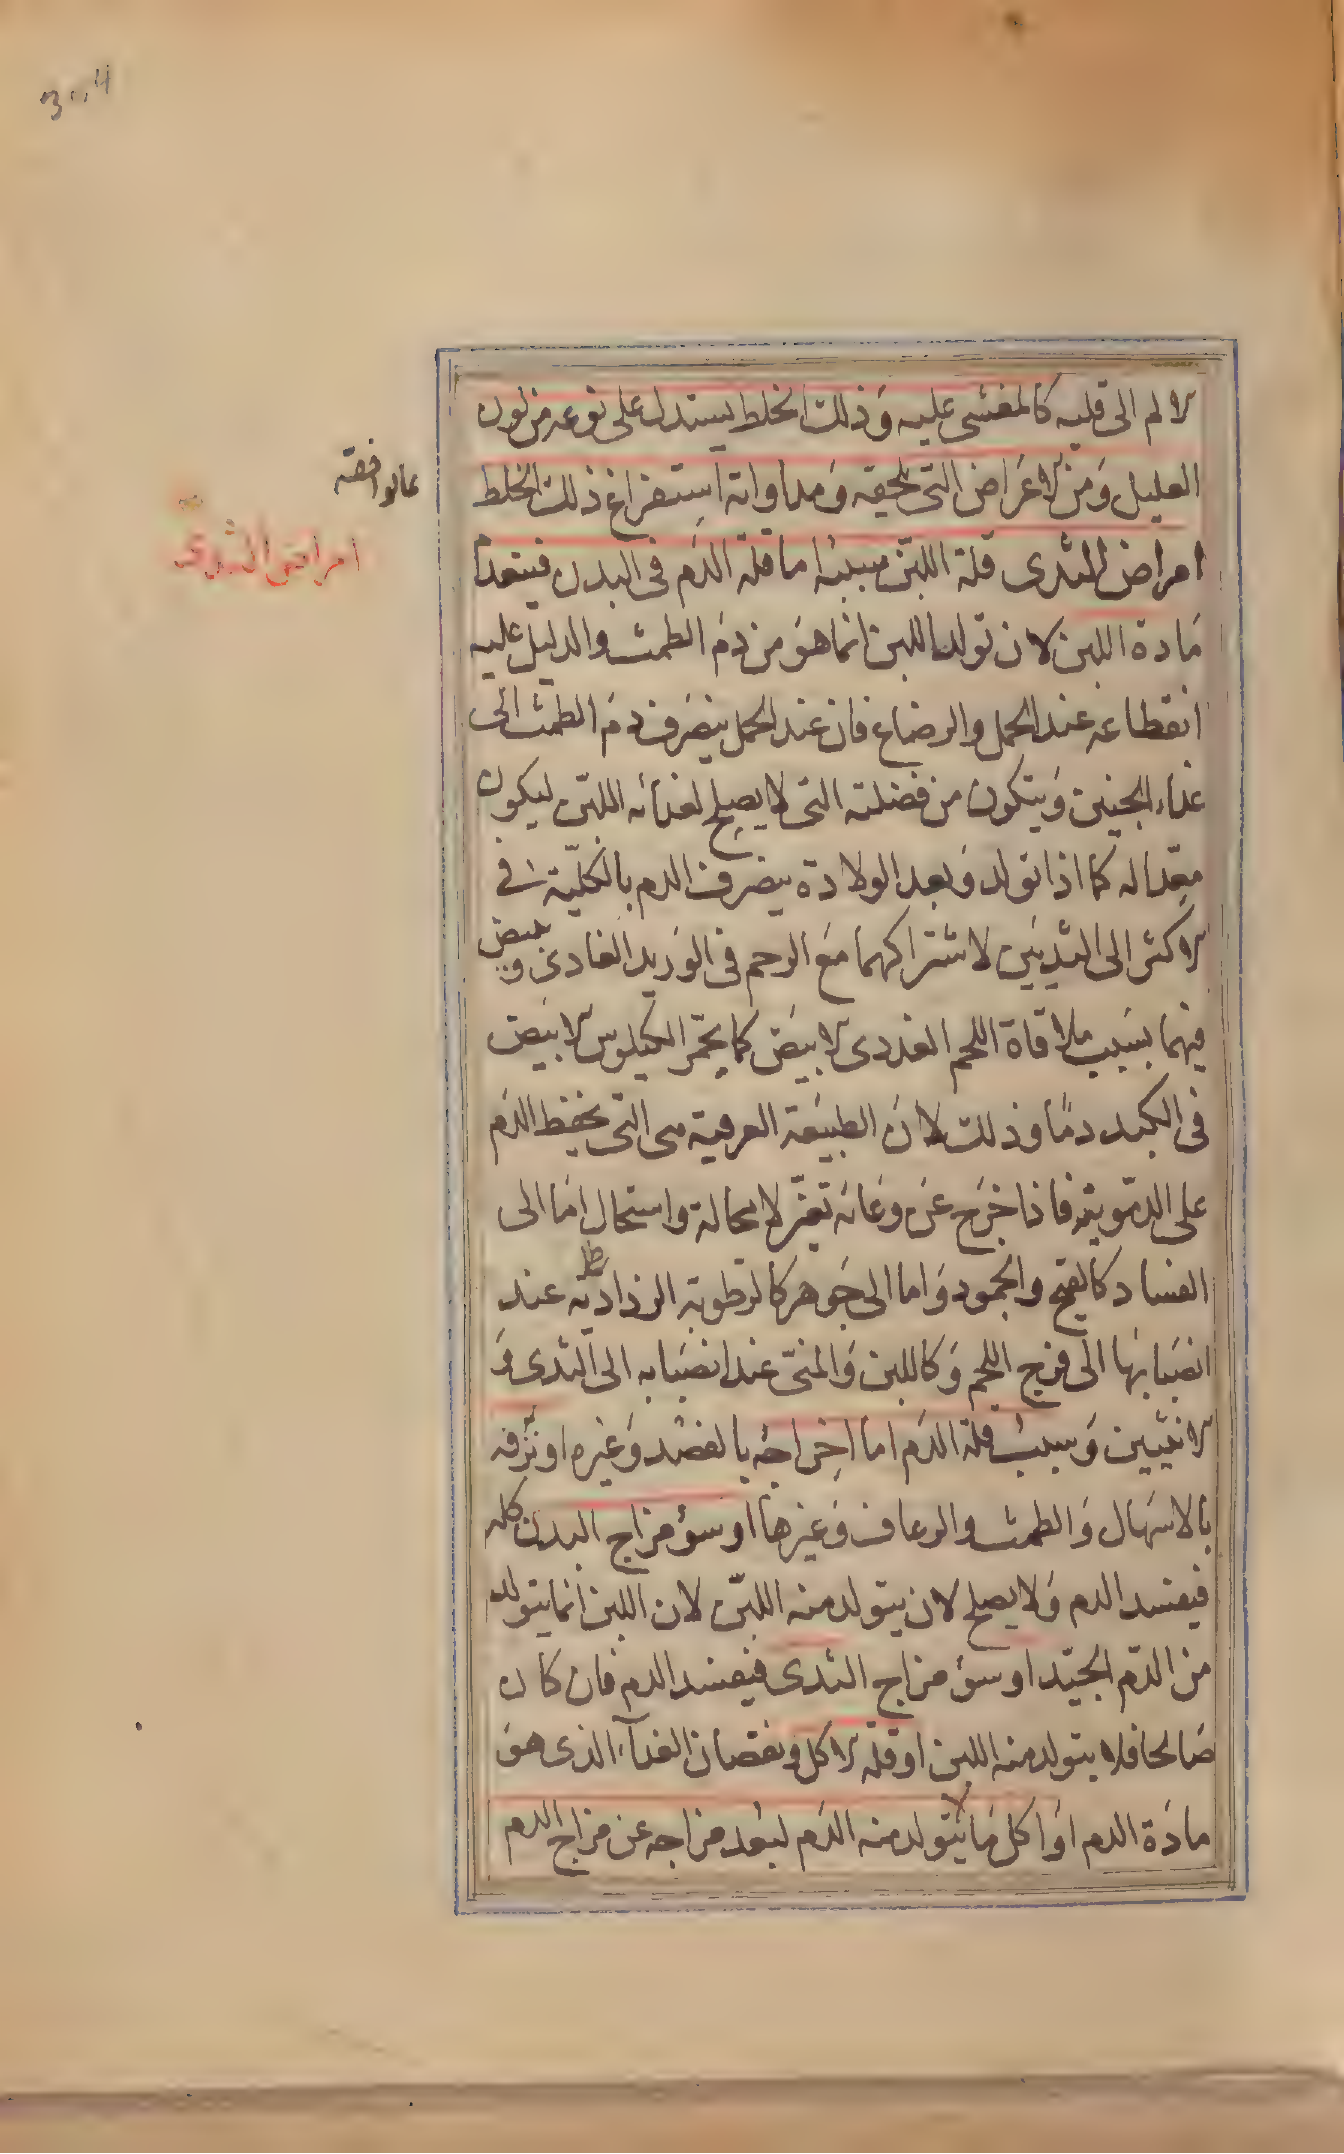 الالم الى قلبه كالمغشى عليه وَذلك الخلط يستدل على نوعه من لون
العليل وَمن الاعراض التى تلحقه وَمداواته استفراغ ذلك الخلط
بما يوافقه
امراض الثدى
امراض الثدى قلة اللبن سببه اما قلة الدم فى البدن فينعدم
مَادة اللبن لان تولد اللبن انما هوَ من دم الطمث والدليل عليه
انقطاعه عند الحمل والرضاع فان عند الحمل ينصرف دم الطمث الى
غذاء الجنين وَيتكون من فضلته التى لا يصلح لغذائه اللبن ليكون
معدا له كما اذا تولد وَبعد الولادة ينصرف الدم بالكلية فى
الاكثر الى الثديين لاشتراكهما مع الرحم فى الوريد الغاذى وَيبيض
فيهما بسَبب ملاقاة اللحم الغددى الابيض كما يحمّر الكيلوس الابيض
فى الكبد دمًا وذلك لانَ الطبيعة العرقية هى التى يحفظ الدم
على الدمّوية فاذا خرَج عَن وعَائه تغيّر لا محالة واستحال اما الى
الفساد كالقيح والجمود وَاما الى جَوهر كالرطوبة الرذاذية عند
انصبَابهَا الى فرج اللحم وَكاللبن وَالمنىّ عند انصبَابه الى الثدى وَ
الانثيين وَسببُ قلة الدم اما اخراجهُ بالفصْد وَغيره او نَزفه
بالاسهَال وَالطمث والرعاف وَغيرها او سوُء مزاج البدن كله
فيفسد الدم وَلا يصلح لان يتولد منه اللبن لان اللبن انما يتولد
من الدّم الجيّد او سوء مزاج الثدى فيفسد الدم فان كان
صَالحا فلا يتولد منه اللبن او قلة الاكل ونقصان الغذآء الذى هوَ
مادَة الدم اوَ اكل مَا لا يتولد منه الدَم لبُعد مزاجه عن مزاج الدم